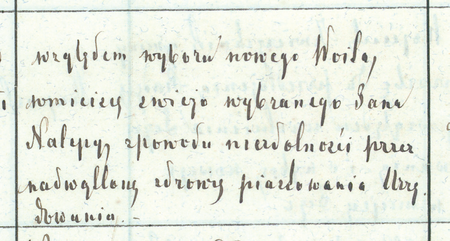 względem wyboru nowego Woita,
wmieiscy zwiejo wybranego Jana
Nalepy, zpowodu niezdolności przez
nadwątlony zdrowy piastowania Urzę
dowania.-